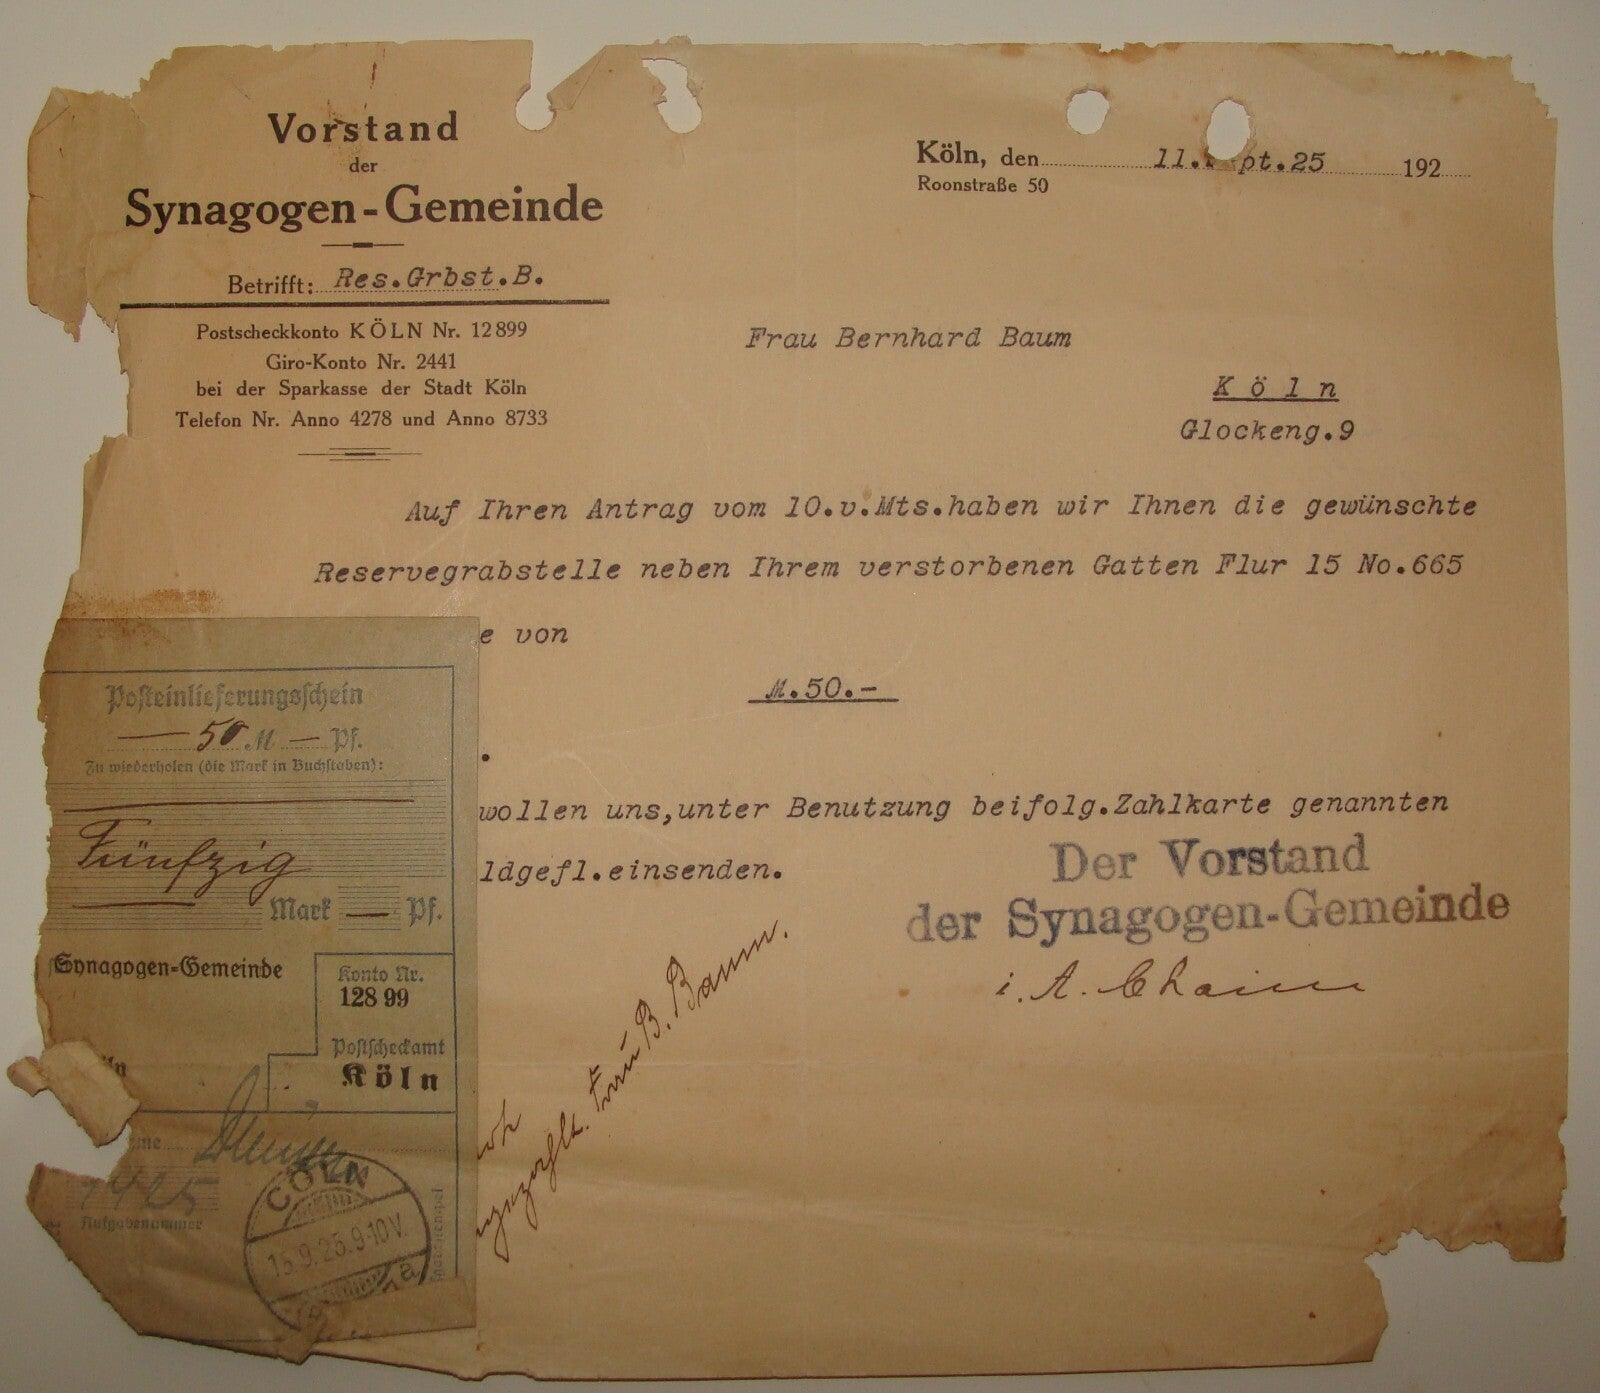 Vorstand
der
Synagogen-Gemeinde
Betrifft: Res.Grbst.B.
Postscheckkonto KÖLN Nr. 12899
Giro-Konto Nr. 2441
bei der Sparkasse der Stadt Köln
Telefon Nr. Anno 4278 und Anno 8733
Köln, den 11. pt.25 192
Roonstraße 50
Frau Bernhard Baum
Köln
Glockeng.9
Auf Ihren Antrag vom 10.v.Mts.haben wir Ihnen die gewünschte
Reservegrabstelle neben Ihrem verstorbenen Gatten Flur 15 No.665
e von
M.50.-
.
wollen uns,unter Benutzung beifolg.Zahlkarte genannten
ldgefl.einsenden.
Der Vorstand
der Synagogen-Gemeinde
i. A. Chaim
Frau B. Baum.
Posteinlieferungsschein
— 50 M — Pf.
Zu wiederholen (die Mark in Buchstaben):
Fünfzig
Mark — Pf.
Synagogen-Gemeinde
Konto Nr.
128 99
Postscheckamt
Köln
ln
me
Aufgabenummer
CÖLN
15.9.25.9-10V.